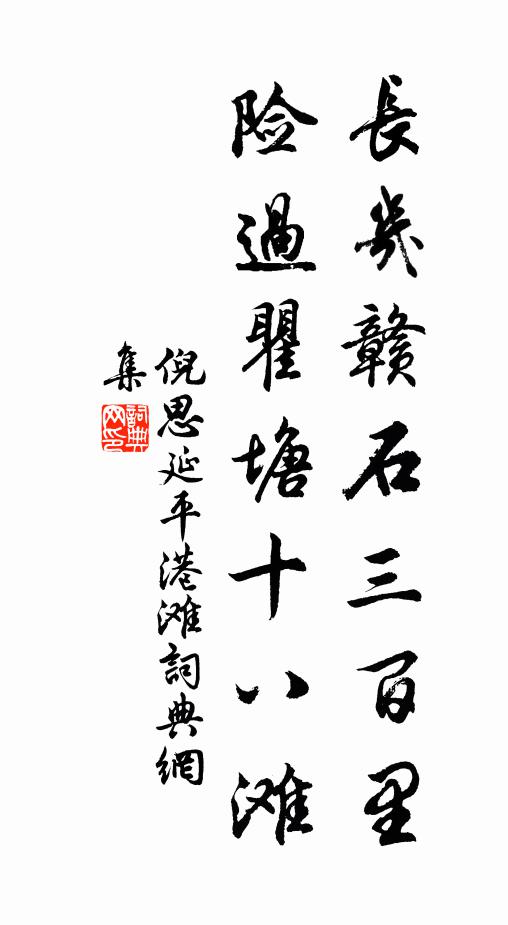 長幾赣石三百里
险過瞿塘十八滩
倪思延平港滩詞典網
集
詞典网印